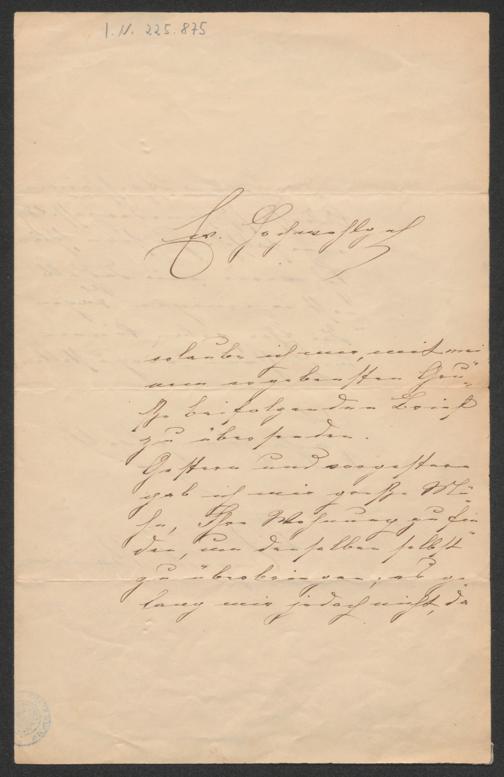 I.N. 225.875
Ew. Hochwohlgeb
erlaube ich mir, mit mei
nem ergebensten Grü-
ße beifolgenden Brief
zu übersenden.
Gestern und vorgestern
gab ich mir große Mü
he, Ihre Wohnung zu fin
den, um denselben selbst
zu überbringen, es ge
lang mir jedoch nicht, da